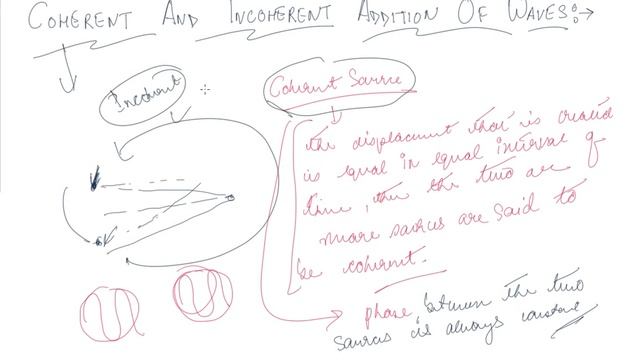 COHERENT AND INCOHERENT ADDITION OF WAVES:→
Incoherent
Coherent Source
the displacement that is created
is equal in equal interval of
time, then the two are
more sources are said to
be coherent.
phase between the two
sources is always constant